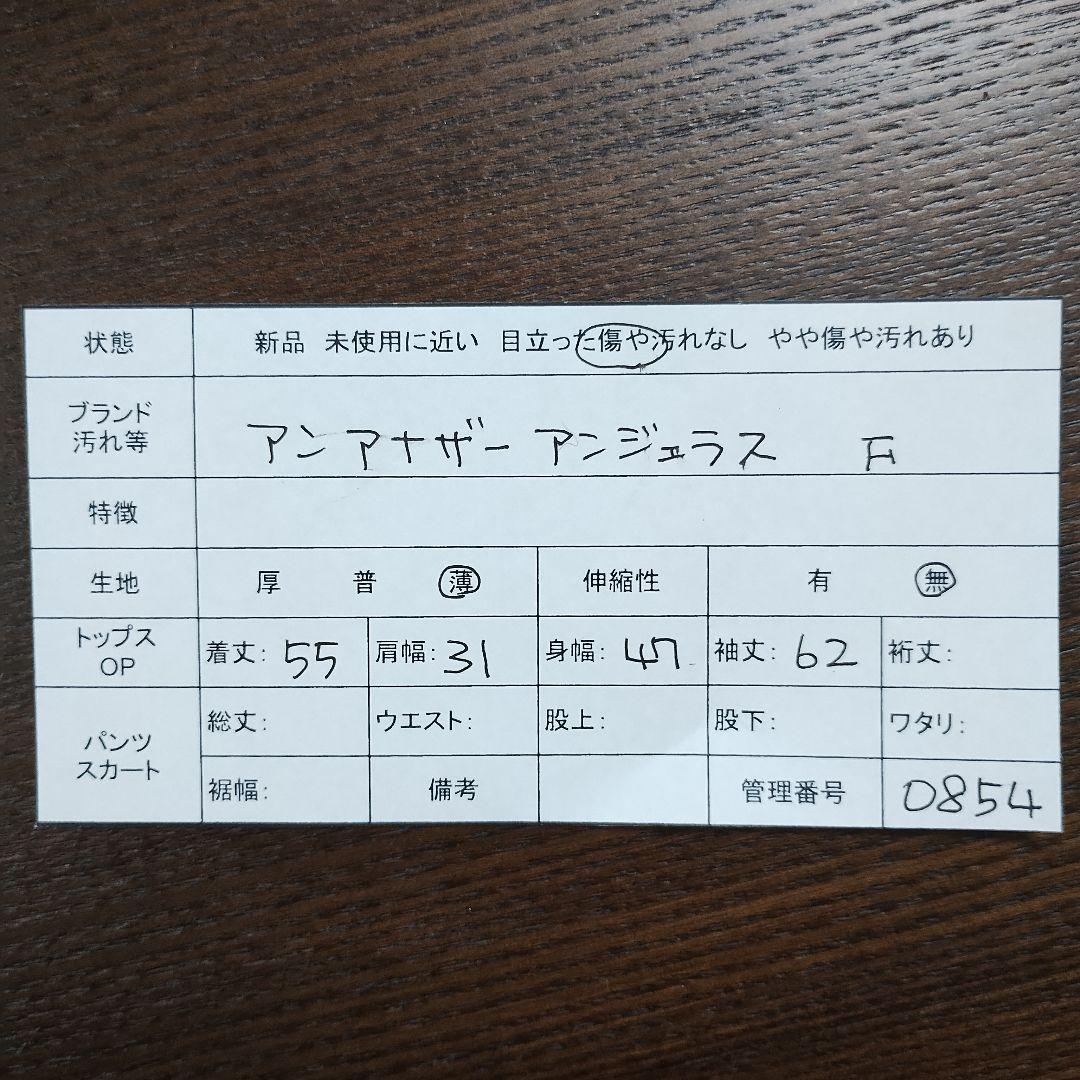 状態 新品 未使用に近い 目立った傷や汚れなし やや傷や汚れあり
ブランド
汚れ等
アンアナザーアンジェラス F
特徴
生地 厚 普 薄 伸縮性 有 無
トップス
OP
着丈: 55 肩幅: 31 身幅: 47 袖丈: 62 裄丈:
パンツ
スカート
総丈: ウエスト: 股上: 股下: ワタリ:
裾幅: 備考 管理番号 0854